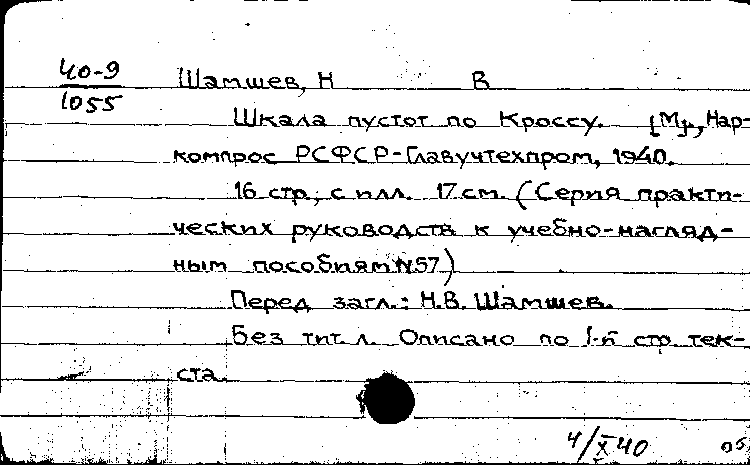 40-9
1055
Шамшев, Н В
Шкала пустот по Кроссу. [М], Нар-
компрос РСФСР-Главучтехпром, 1940.
16 стр.; с илл. 17 см. (Серия практи-
ческих руководств к учебно-нагляд-
ным пособиям №57)
Перед загл.: Н.В. Шамшев.
Без тит. л. Описано по 1-й стр. тек-
ста.
4/X 40